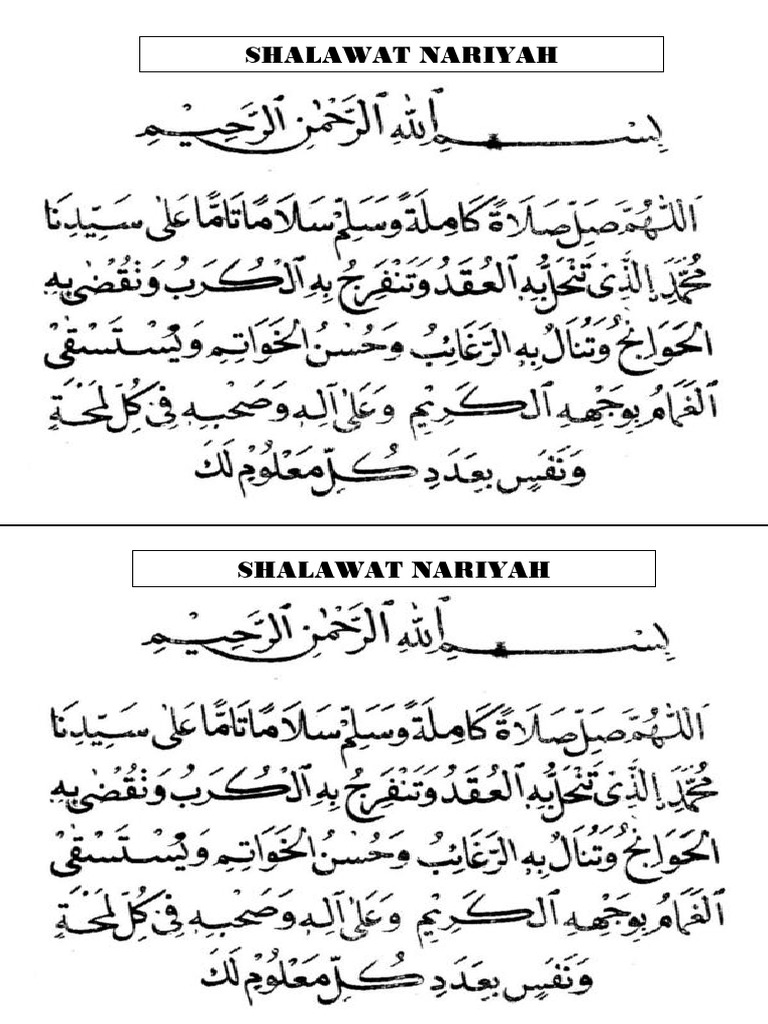 SHALAWAT NARIYAH
بِسْمِ اللهِ الرَّحْمٰنِ الرَّحِيْمِ
اَللّٰهُمَّ صَلِّ صَلَاةً كَامِلَةً وَسَلِّمْ سَلَامًا تَامًّا عَلٰى سَيِّدِنَا
مُحَمَّدٍ الَّذِيْ تَنْحَلُّ بِهِ الْعُقَدُ وَتَنْفَرِجُ بِهِ الْكُرَبُ وَتُقْضٰى بِهِ
الْحَوَائِجُ وَتُنَالُ بِهِ الرَّغَائِبُ وَحُسْنُ الْخَوَاتِمِ وَيُسْتَسْقَى
الْغَمَامُ بِوَجْهِهِ الْكَرِيْمِ وَعَلٰى اٰلِهِ وَصَحْبِهِ فِيْ كُلِّ لَمْحَةٍ
وَنَفَسٍ بِعَدَدِ كُلِّ مَعْلُوْمٍ لَكَ
SHALAWAT NARIYAH
بِسْمِ اللهِ الرَّحْمٰنِ الرَّحِيْمِ
اَللّٰهُمَّ صَلِّ صَلَاةً كَامِلَةً وَسَلِّمْ سَلَامًا تَامًّا عَلٰى سَيِّدِنَا
مُحَمَّدٍ الَّذِيْ تَنْحَلُّ بِهِ الْعُقَدُ وَتَنْفَرِجُ بِهِ الْكُرَبُ وَتُقْضٰى بِهِ
الْحَوَائِجُ وَتُنَالُ بِهِ الرَّغَائِبُ وَحُسْنُ الْخَوَاتِمِ وَيُسْتَسْقَى
الْغَمَامُ بِوَجْهِهِ الْكَرِيْمِ وَعَلٰى اٰلِهِ وَصَحْبِهِ فِيْ كُلِّ لَمْحَةٍ
وَنَفَسٍ بِعَدَدِ كُلِّ مَعْلُوْمٍ لَكَ